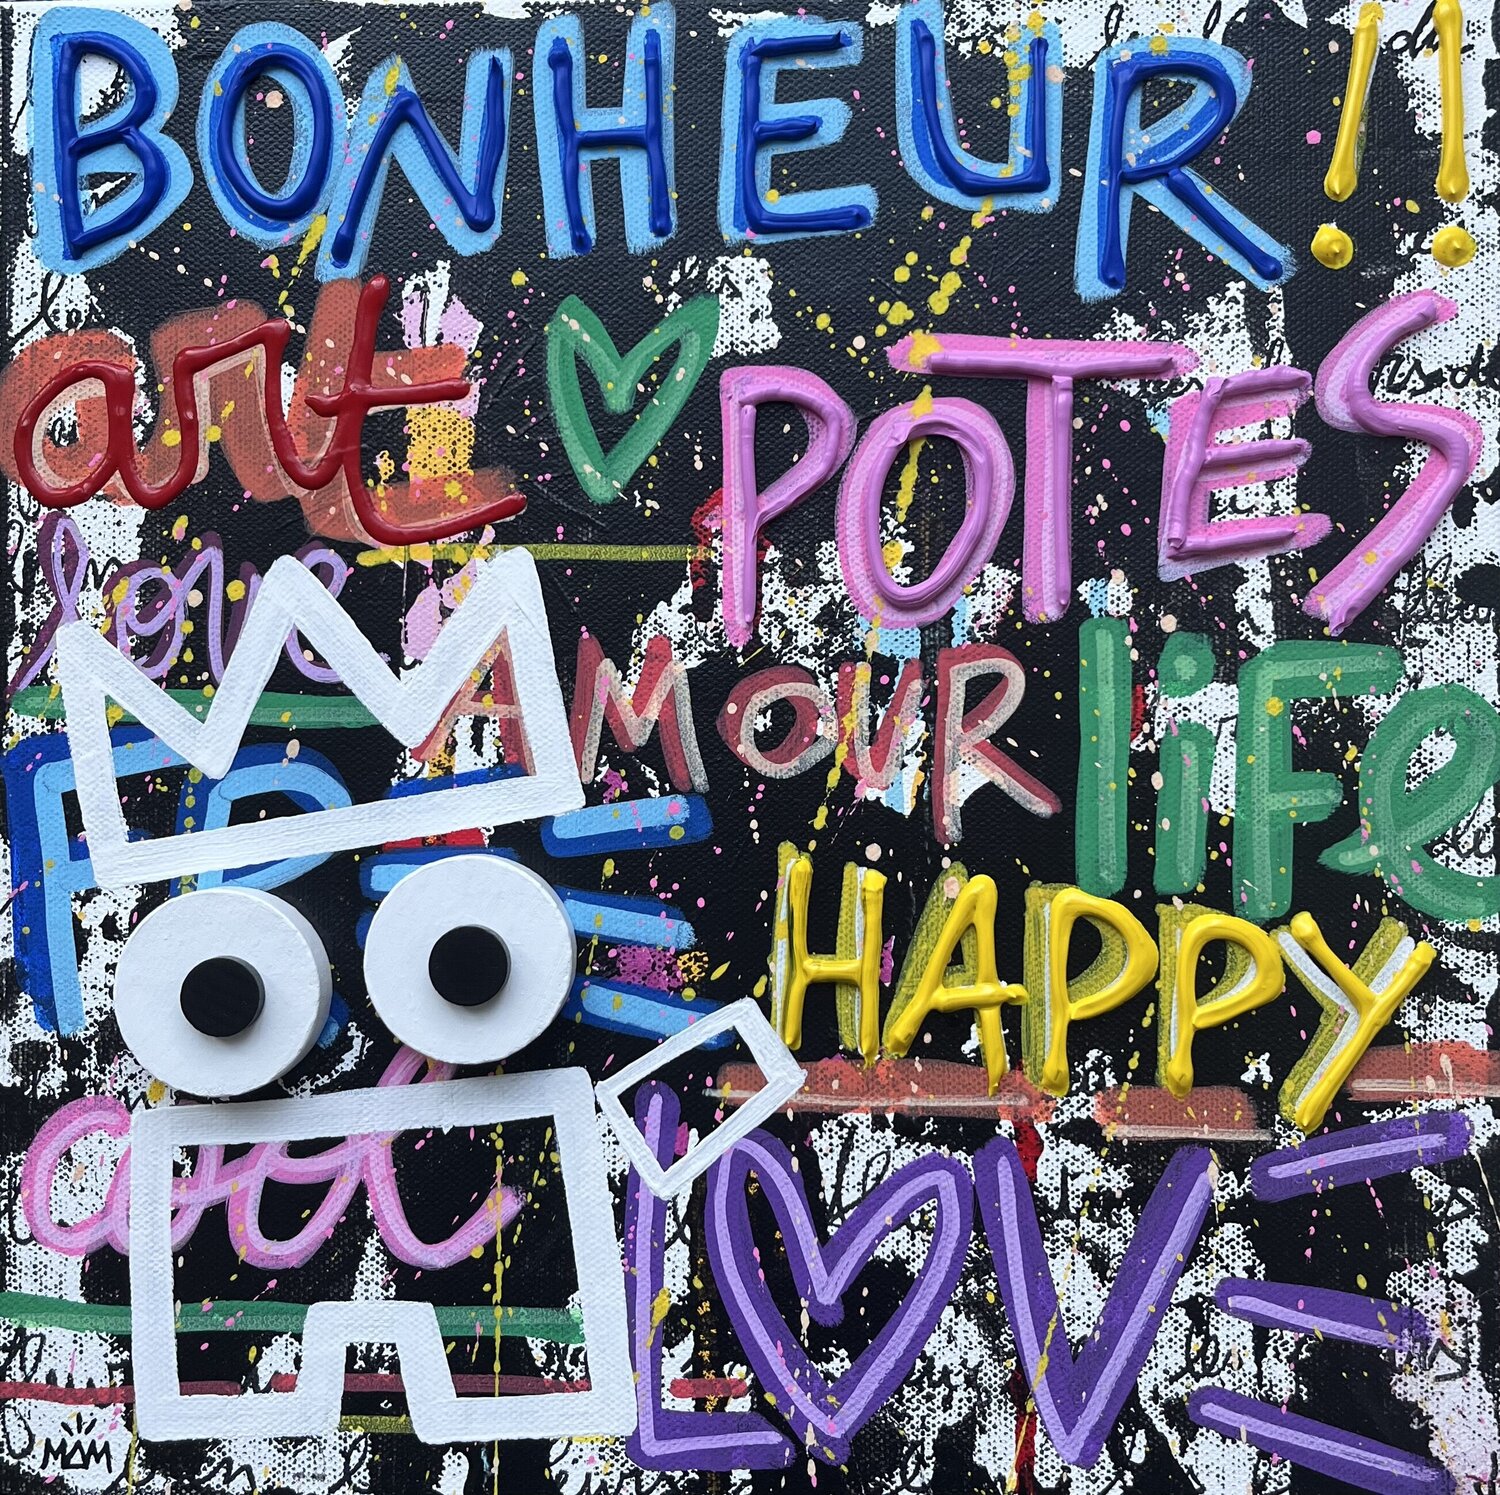 BONHEUR !!
art POTES
love
AMOUR liFe
HAPPY
cool
LOVE
MAM